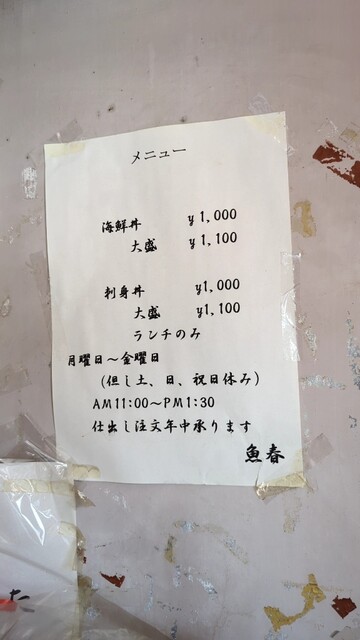 メニュー
海鮮丼 ¥1,000
大盛 ¥1,100
刺身丼 ¥1,000
大盛 ¥1,100
ランチのみ
月曜日～金曜日
(但し土、日、祝日休み)
AM11:00～PM1:30
仕出し注文年中承ります
魚春
た